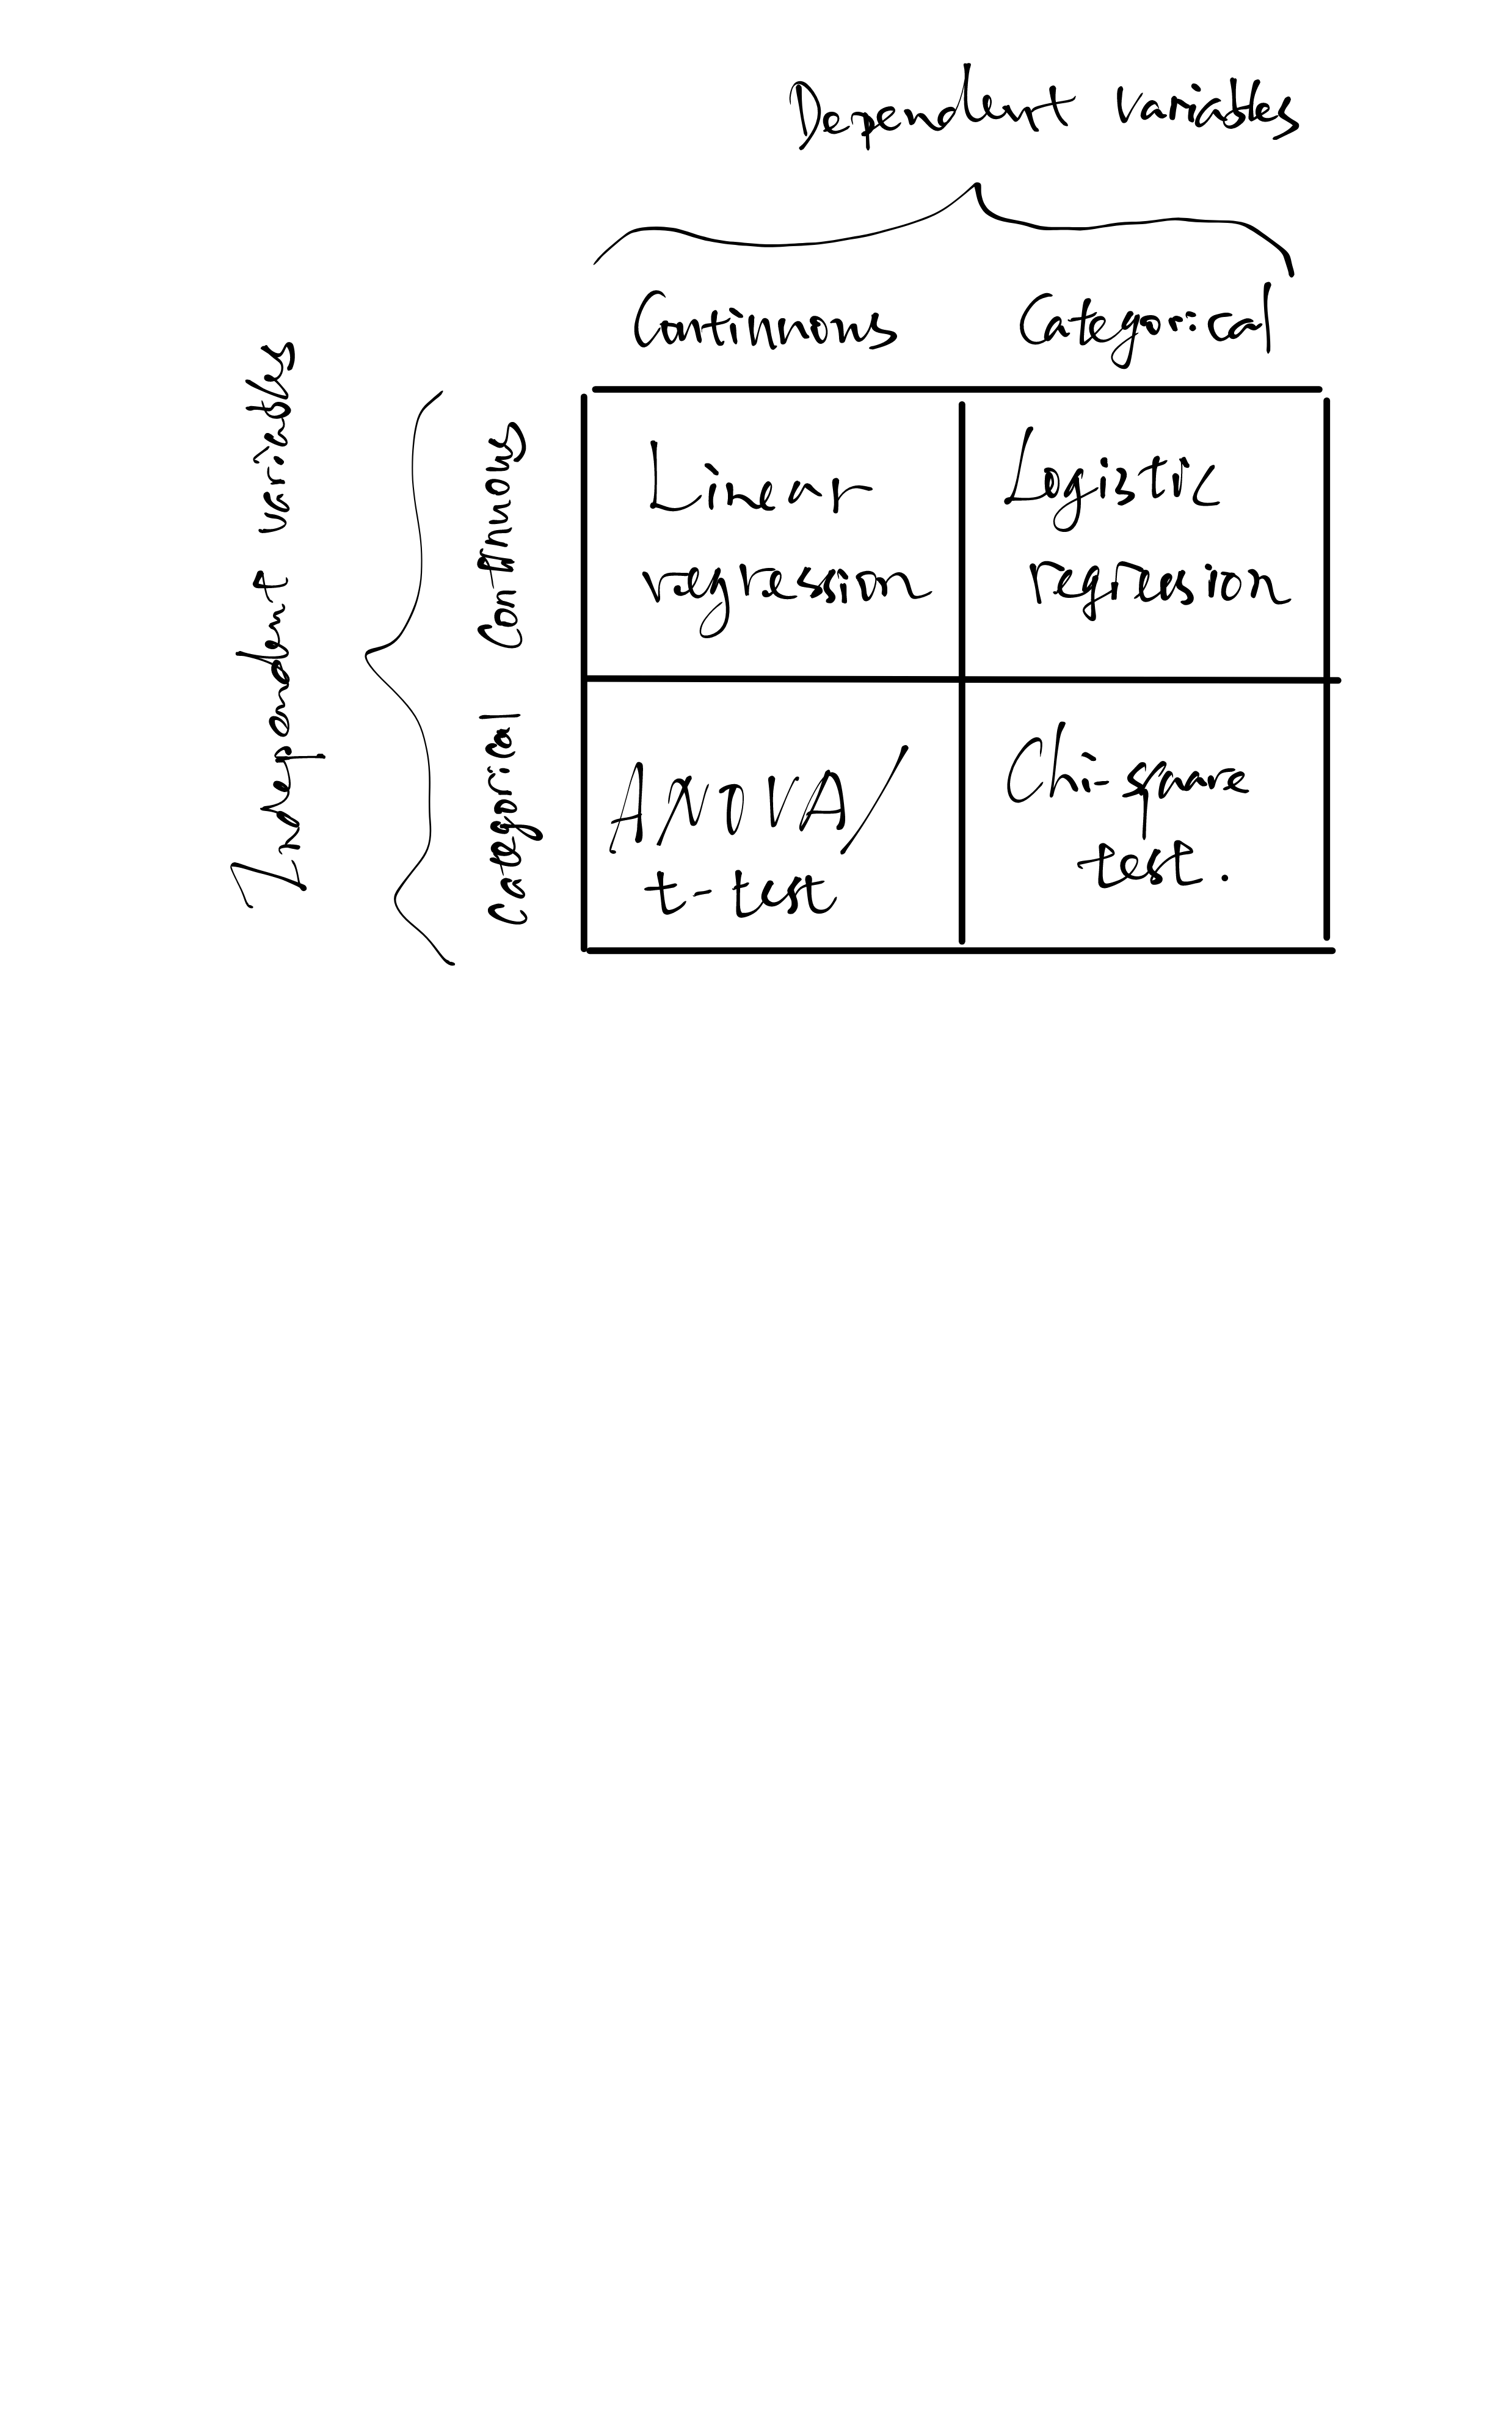 Dependent variables
Continuous Categorical
Independent variables
Continuous
Categorical
Linear
regression
Logistic
regression
ANOVA/
t-test
Chi-square
test.